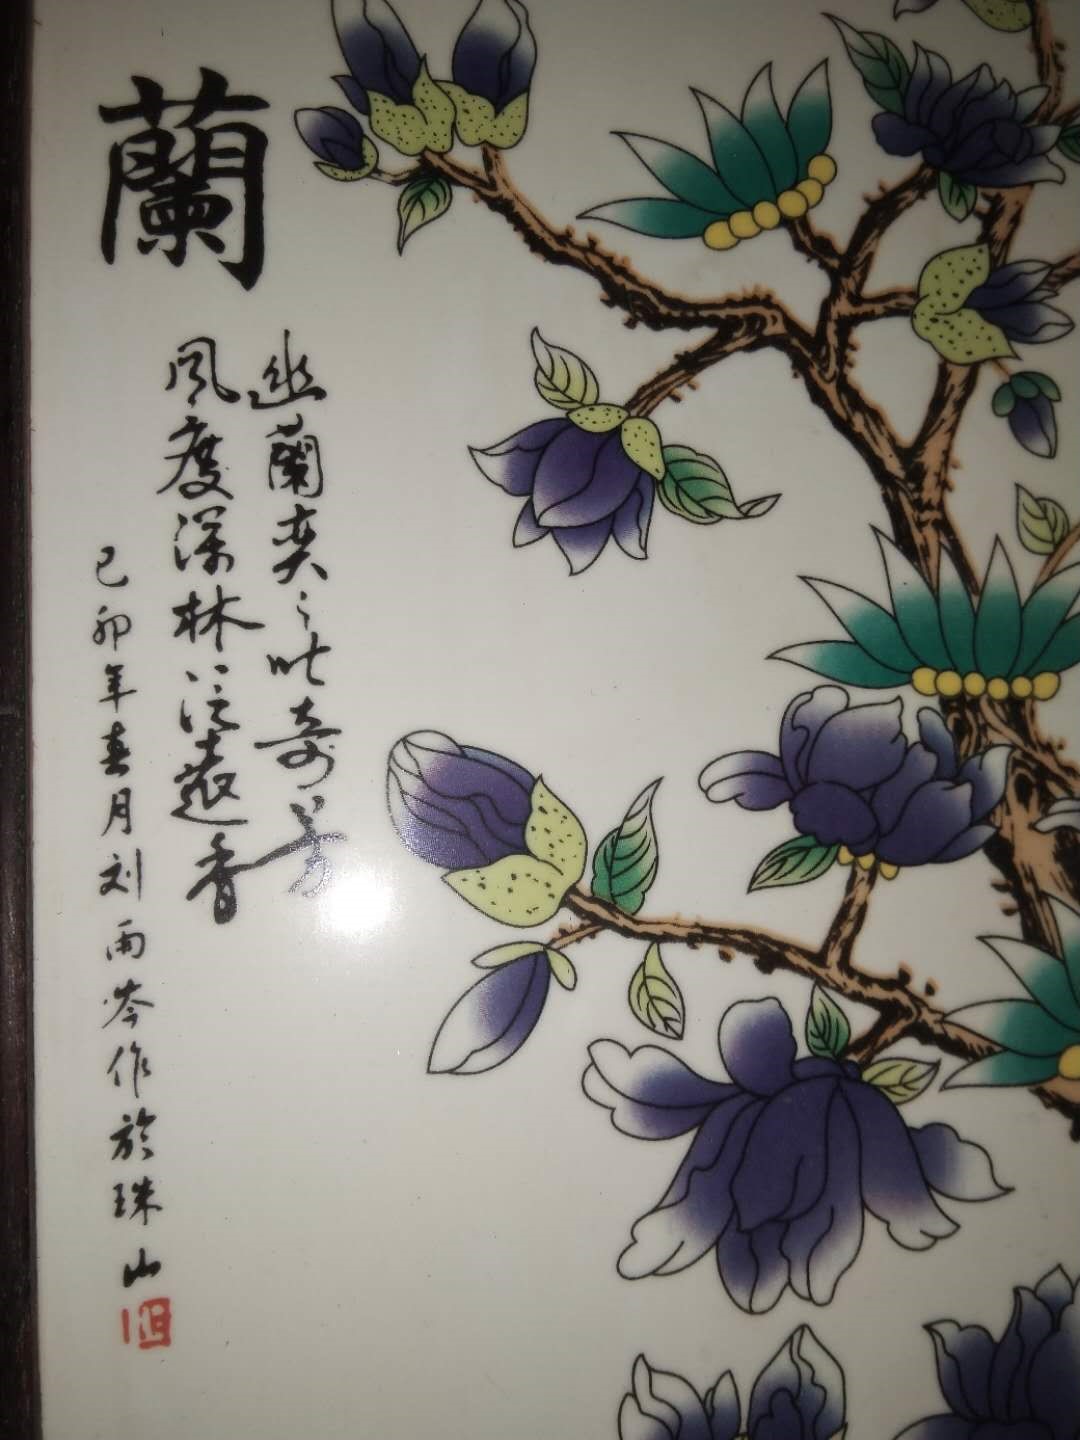 蘭
幽蘭奕々吐奇芳
風度深林泛遠香
己卯年春月刘雨岑作於珠山